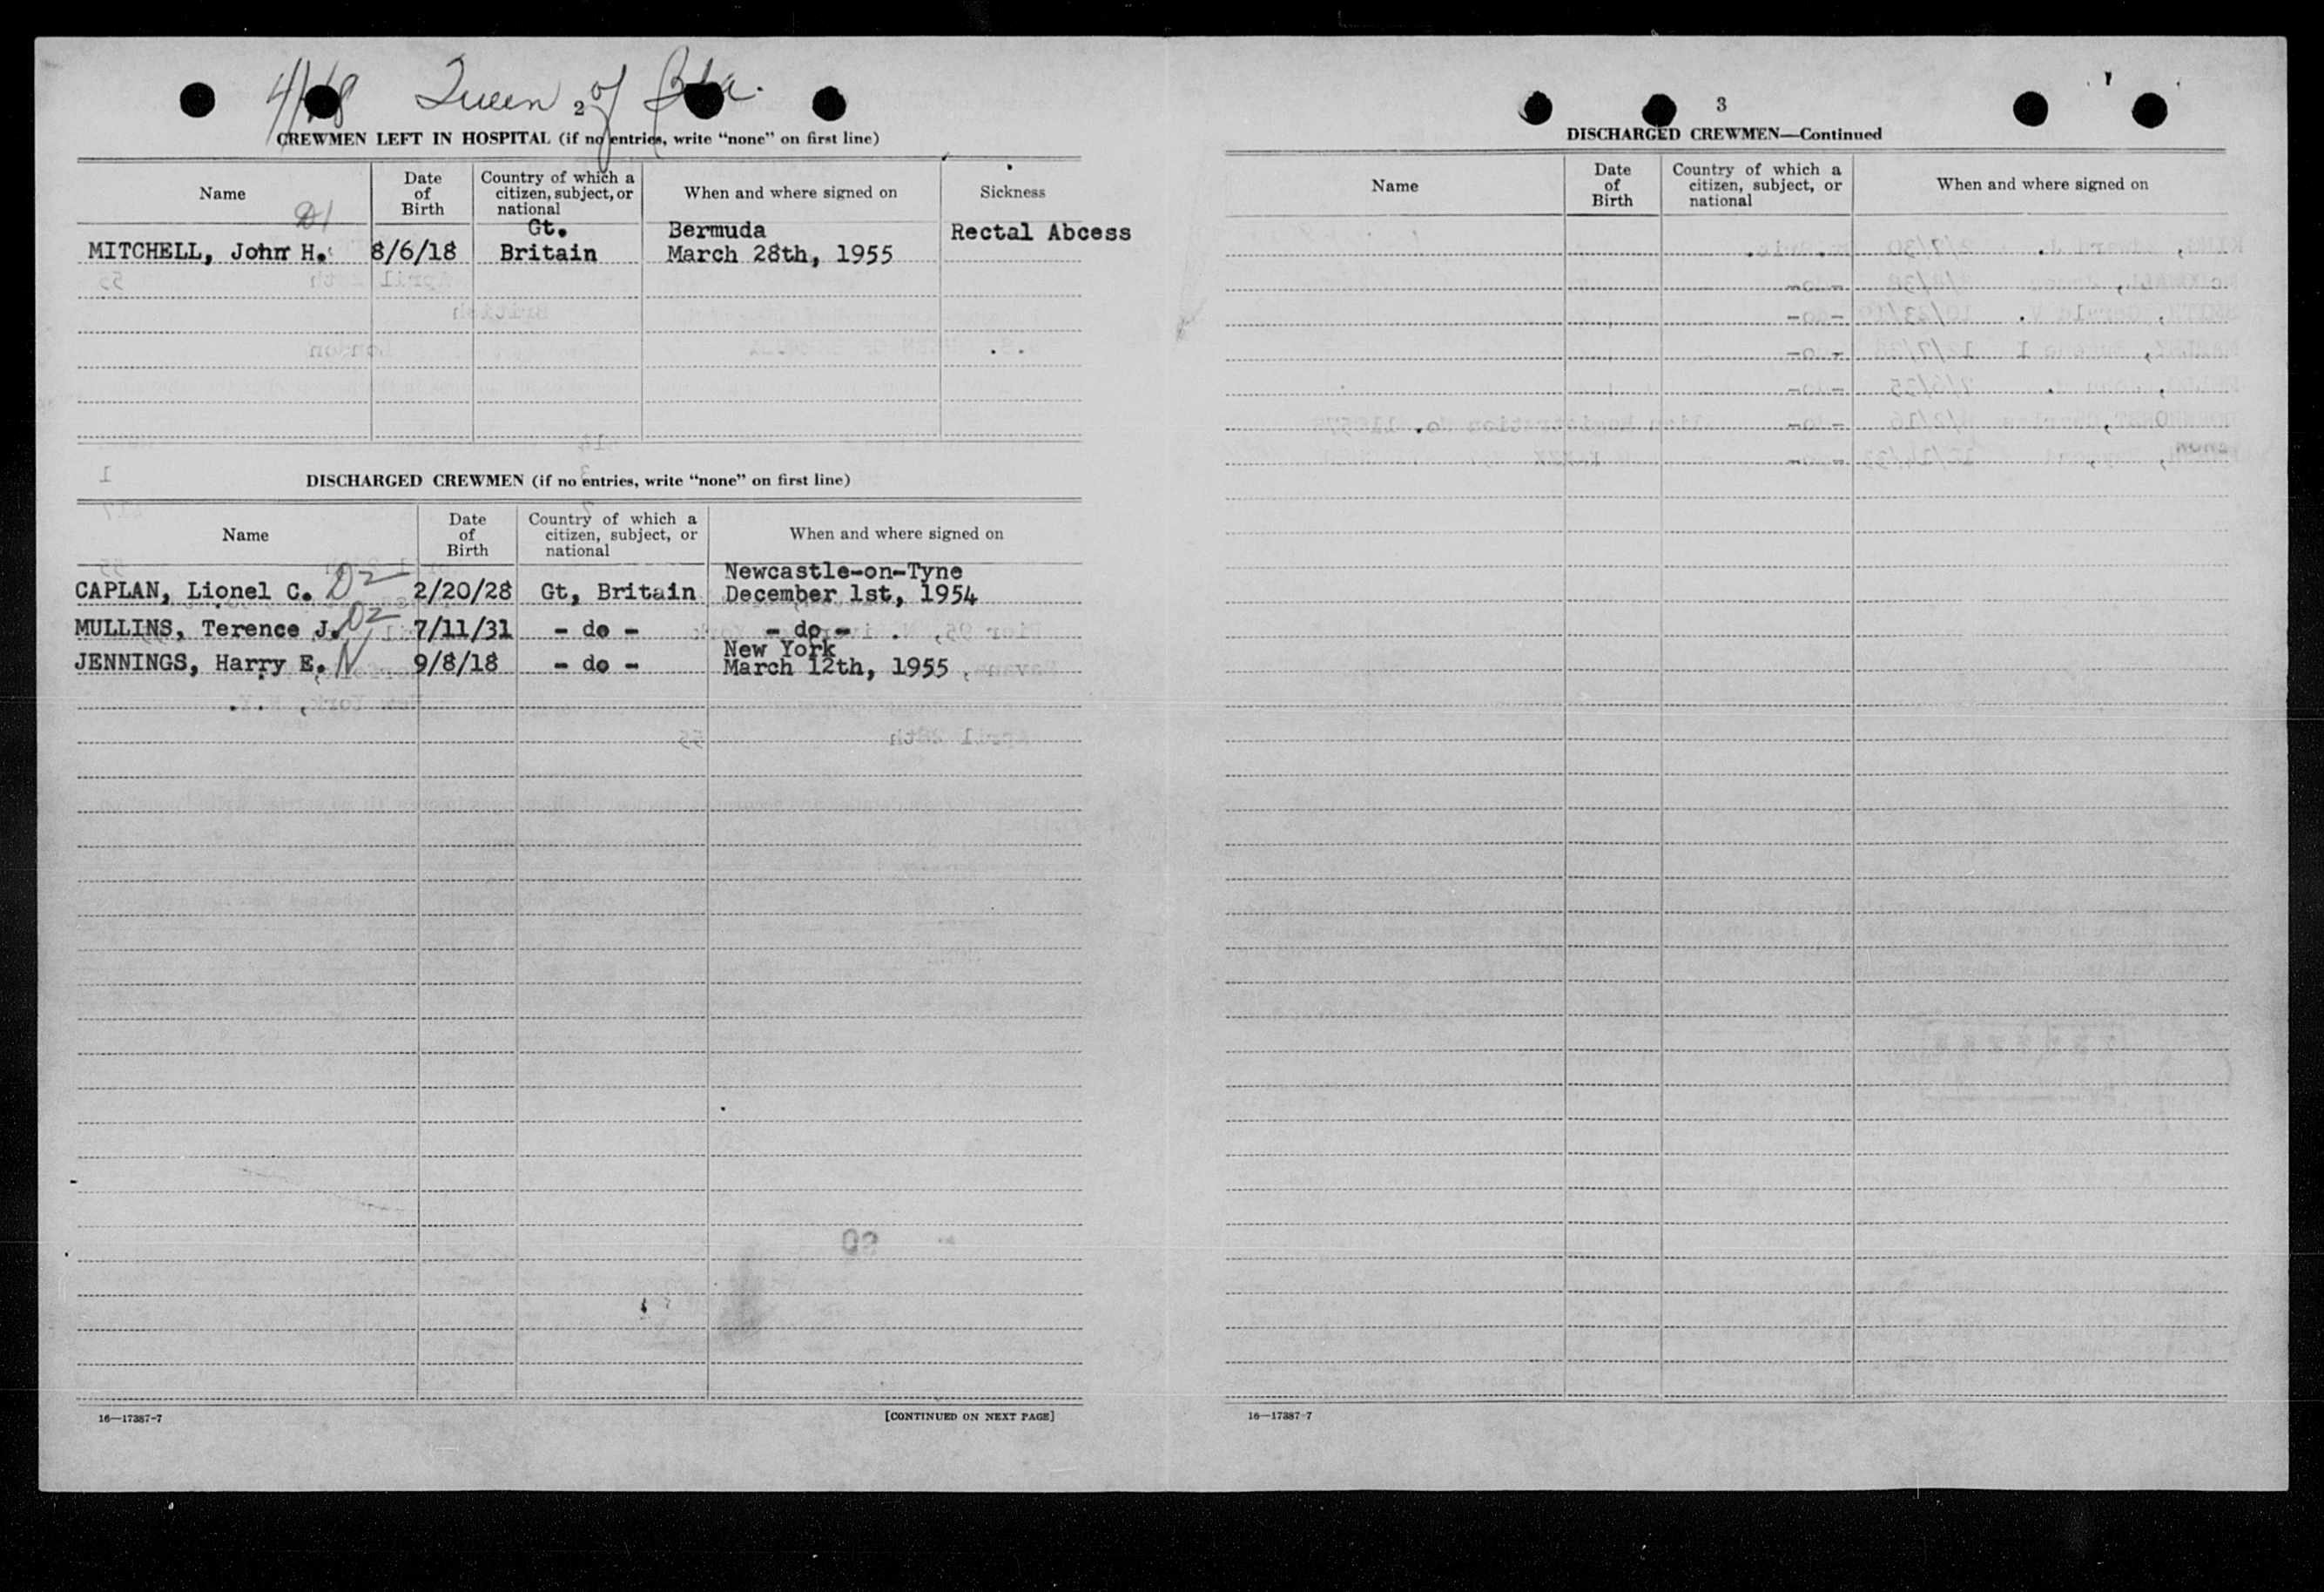 Queen of Bda.
2
CREWMEN LEFT IN HOSPITAL (if no entries, write “none” on first line)
Name
Date of Birth
Country of which a citizen, subject, or national
When and where signed on
Sickness
D1
MITCHELL, John H. 8/6/18 Gt. Britain Bermuda March 28th, 1955 Rectal Abcess
DISCHARGED CREWMEN (if no entries, write “none” on first line)
Name
Date of Birth
Country of which a citizen, subject, or national
When and where signed on
CAPLAN, Lionel C. D2 2/20/28 Gt, Britain Newcastle-on-Tyne December 1st, 1954
MULLINS, Terence J. D2 7/11/31 - do - - do -
JENNINGS, Harry E. N 9/8/18 - do - New York March 12th, 1955
16—17387-7
[CONTINUED ON NEXT PAGE]
3
DISCHARGED CREWMEN—Continued
Name
Date of Birth
Country of which a citizen, subject, or national
When and where signed on
16—17387-7